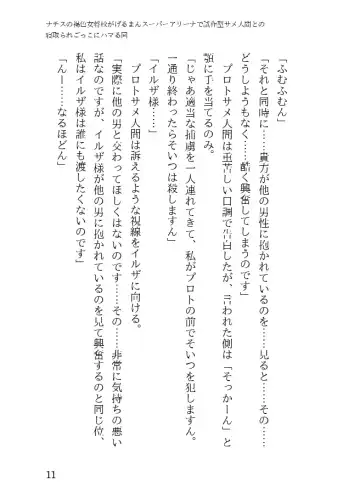 ナチスの褐色女将校がげるまんスーパーアリーナで試作型サメ人間との
寝取られごっこにハマる同
「ふむふむん」
「それと同時に……貴方が他の男性に抱かれているのを……見ると……その……
どうしようもなく……酷く興奮してしまうのです」
プロトサメ人間は重苦しい口調で告白したが、言われた側は「そっかーん」と
顎に手を当てるのみ。
「じゃあ適当な捕虜を一人連れてきて、私がプロトの前でそいつを犯しますん。
一通り終わったらそいつは殺しますん」
「イルザ様……」
プロトサメ人間は訴えるような視線をイルザに向ける。
「実際に他の男と交わってほしくはないのです……その……非常に気持ちの悪い
話なのですが、イルザ様が他の男に抱かれているのを見て興奮するのと同じ位、
私はイルザ様は誰にも渡したくないのです」
「んー……なるほどん」
11